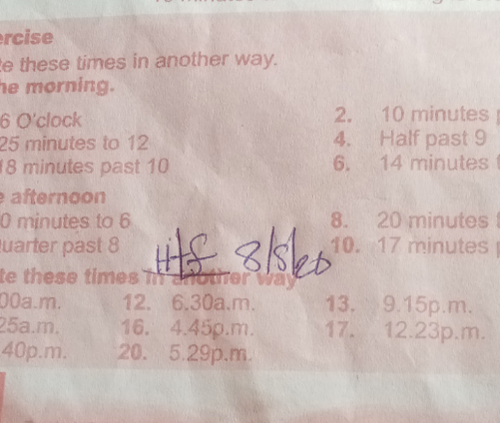 ercise
te these times in another way.
he morning.
6 O'clock 2. 10 minutes p
25 minutes to 12 4. Half past 9
18 minutes past 10 6. 14 minutes
e afternoon
0 minutes to 6 8. 20 minutes
uarter past 8 10. 17 minutes p
8/8/20
te these times in another way
00a.m. 12. 6.30a.m. 13. 9.15p.m.
25a.m. 16. 4.45p.m. 17. 12.23p.m.
40p.m. 20. 5.29p.m.